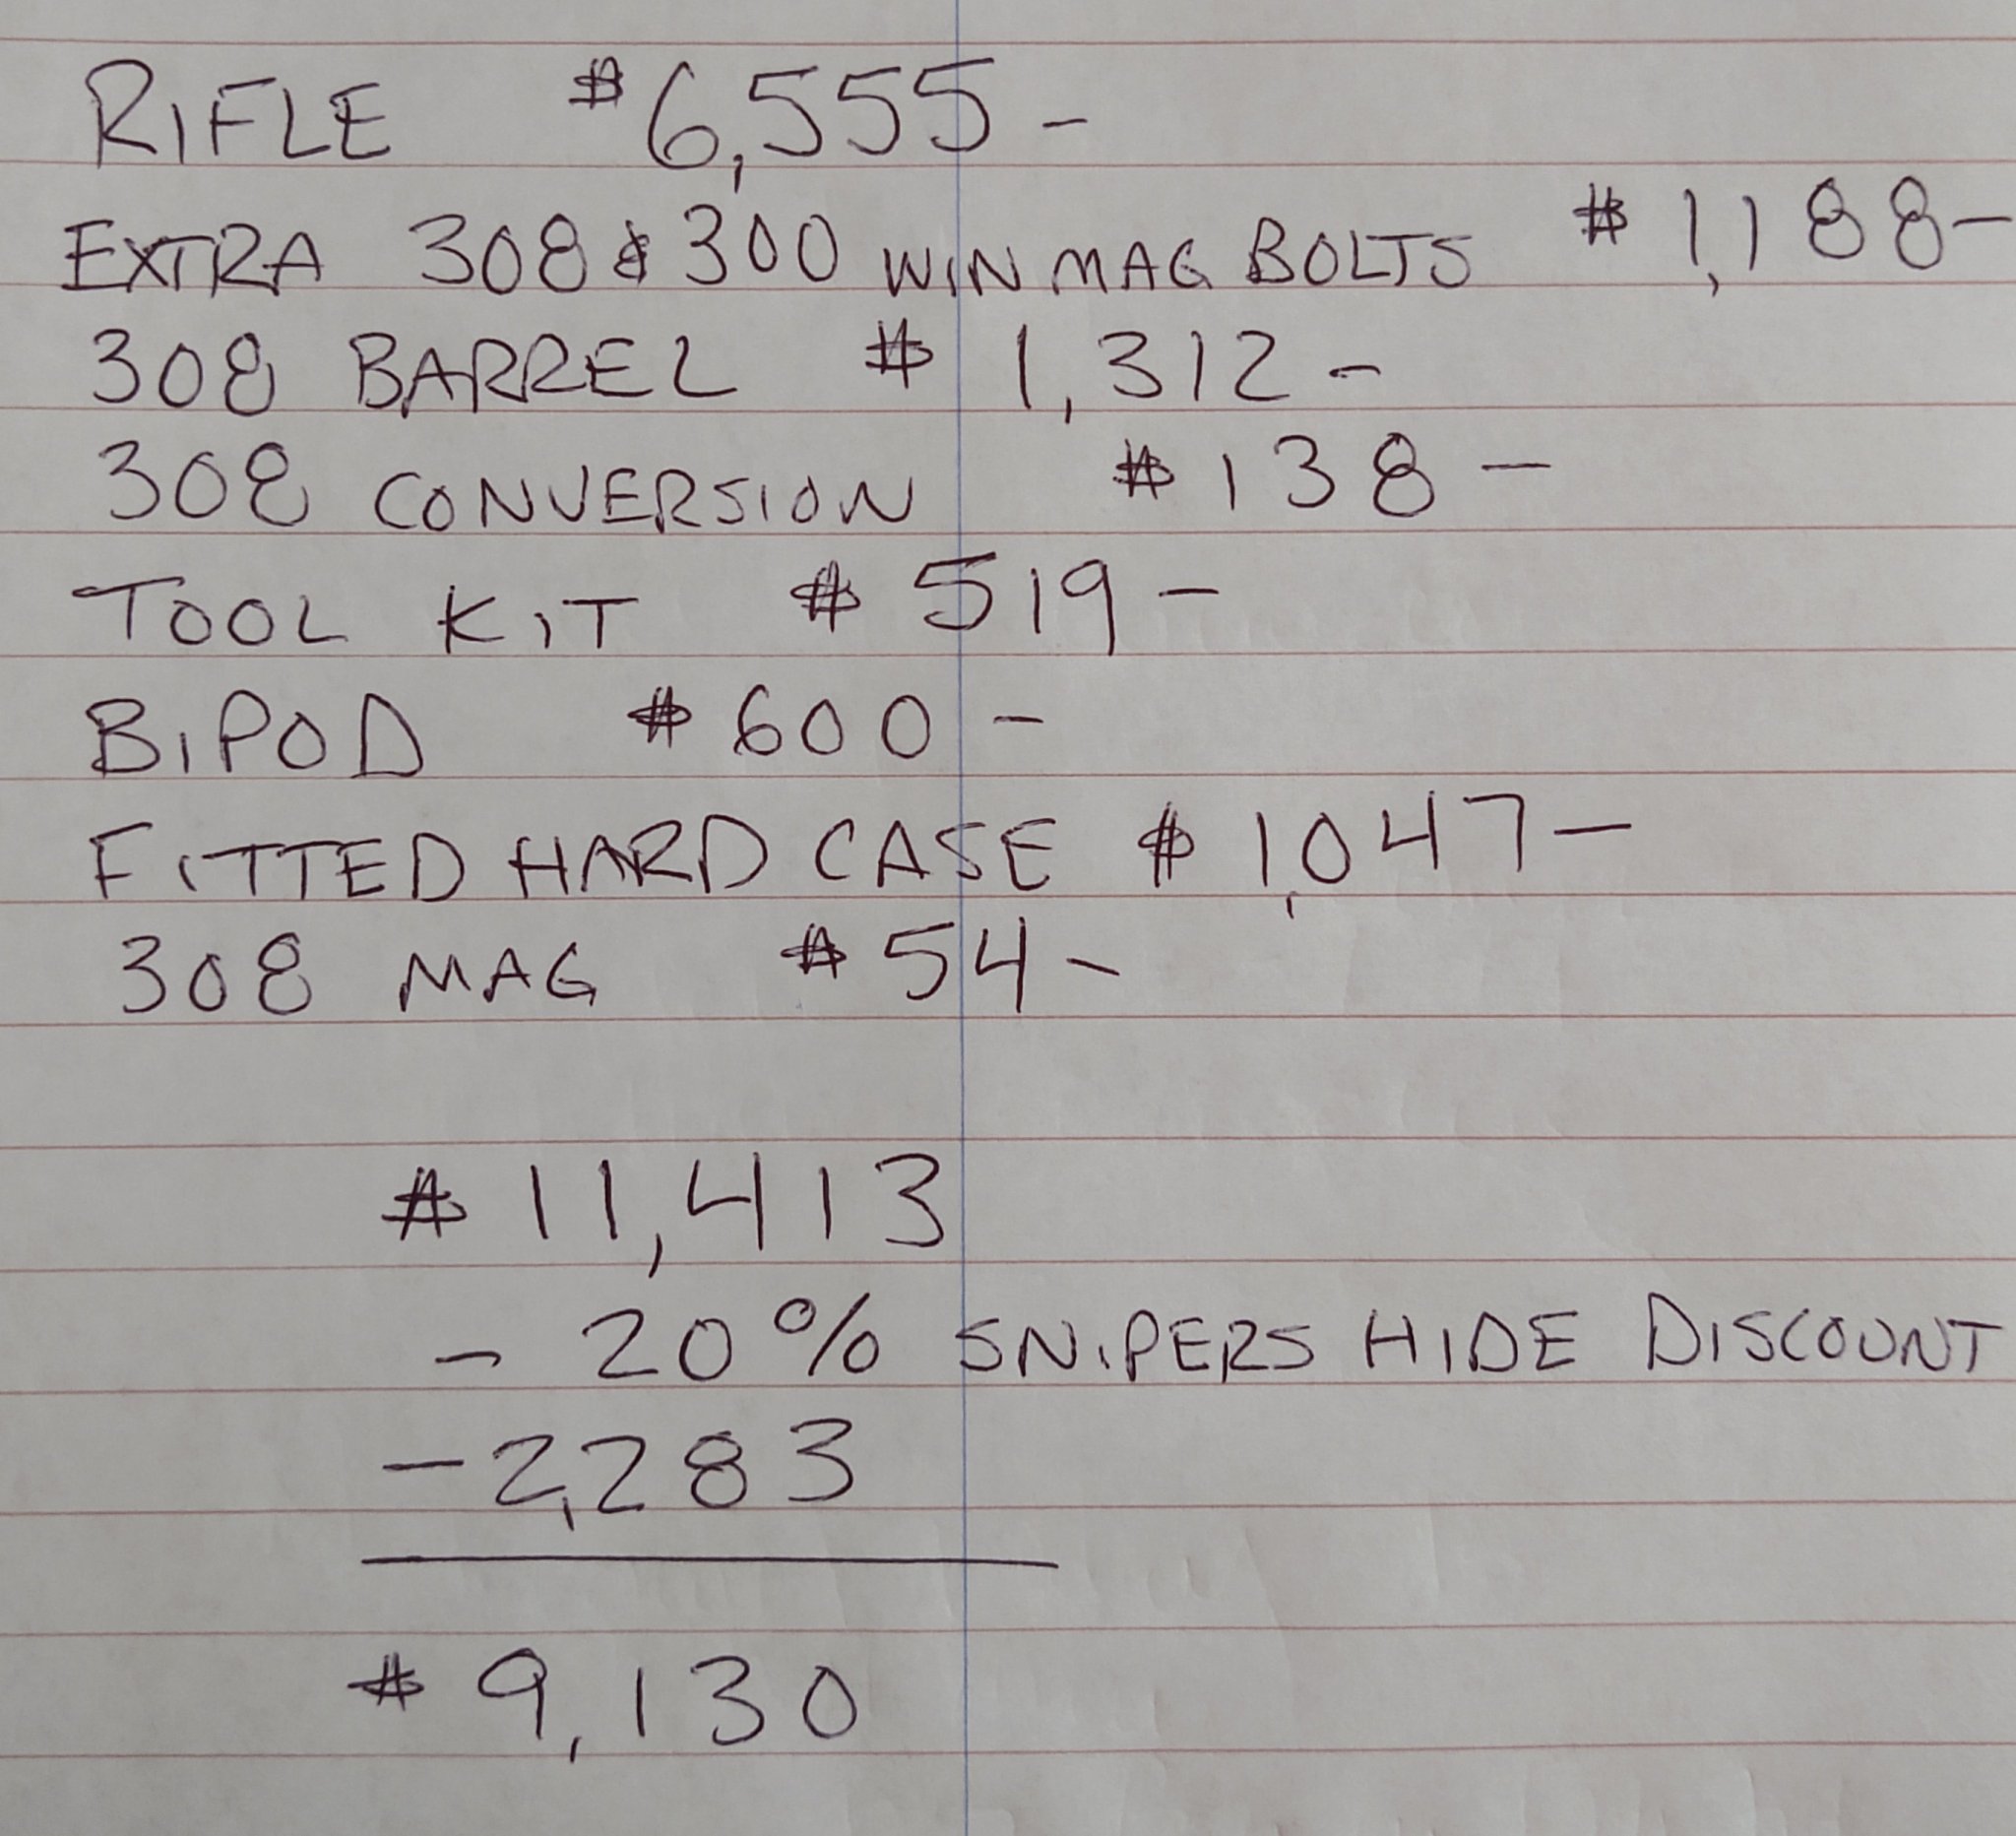 RIFLE $6,555-
EXTRA 308 & 300 WIN MAG BOLTS $1,188-
308 BARREL $1,312-
308 CONVERSION $138-
TOOL KIT $519-
BIPOD $600-
FITTED HARD CASE $1,047-
308 MAG $54-
$11,413
- 20% SNIPERS HIDE DISCOUNT
-2,283
$9,130